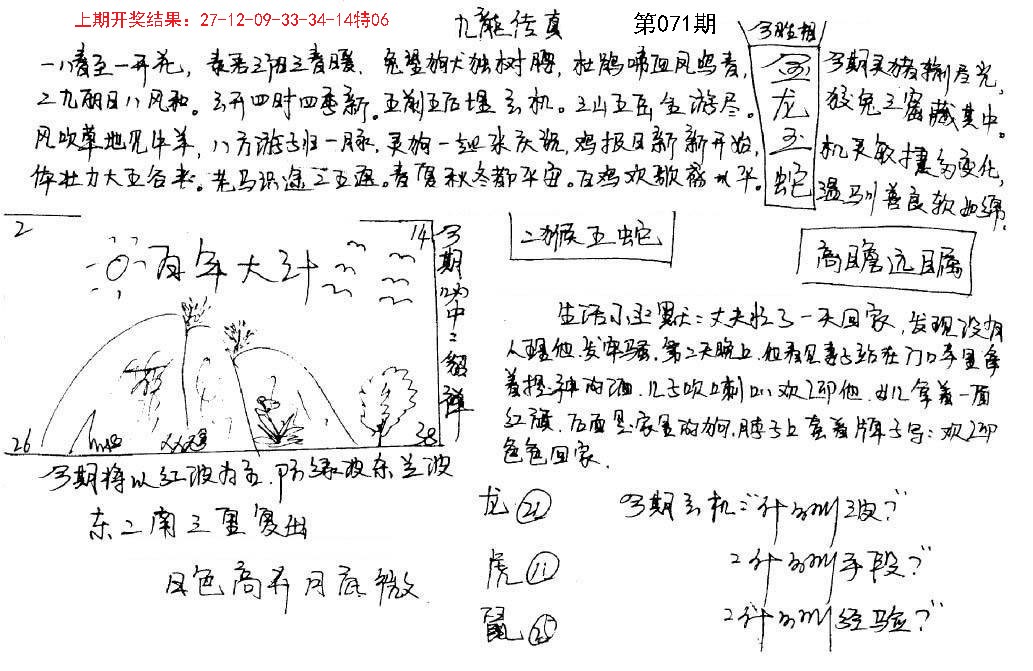 上期开奖结果：27-12-09-33-34-14特06
九龍传真
第071期
一八春至一开花，春若三阳三春暖，兔望狗犬独树腾，杜鹃啼血凤鸣春，
二九丽日八风和。云开四时四季新。五前五后埋玄机。三山五岳金游尽。
风吹草地见牛羊，八方游子归一脉，灵狗一姐来庆祝，鸡报日新新开始，
体壮力大五谷来。老马识途二五遇。春夏秋冬都平宙。百鸡欢歌
今期
金龙玉蛇
今期灵猪
狡兔三窟藏其中。
机灵敏捷多变化，
温马川善良软如绵。
2
14
百年大计
26
38
今期必中二
二猴五蛇
高瞻远瞩
生活小幽默：丈夫忙了一天回家，发现没有
人理他，发牢骚，第二天晚上，他看见妻子站在门口
着 酒，儿子吹喇叭欢迎他，女儿拿着一面
红旗，后面是家里的狗，脖子上套着牌子写：欢迎
爸爸回家.
今期将以红波为主，防绿波东兰波
东二南三重复出
风色高升月底微
龙 21
虎 11
鼠 25
今期玄机：“什么叫 波？”
2“什么叫手段？”
2“什么叫经验？”